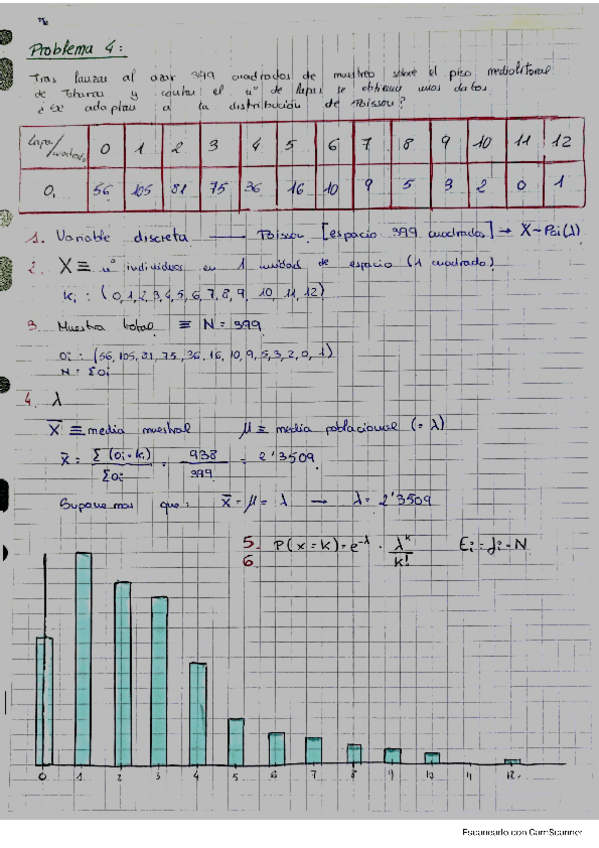 Problema 4:
Tras lanzar al azar 399 cuadrados de muestreo sobre el piso mediolitoral
de Taharas y contar el nº de lapas se obtienen unos datos.
¿Se adaptan a la distribución de Poisson?
Lapas/cuadrado 0 1 2 3 4 5 6 7 8 9 10 11 12
Oi 56 105 81 75 36 16 10 9 5 3 2 0 1
1. Variable discreta → Poisson [espacio 399 cuadrados] → X~Poi(λ)
2. X ≡ nº individuos en 1 unidad de espacio (1 cuadrado)
Ki : (0,1,2,3,4,5,6,7,8,9, 10, 11, 12)
3. Muestra total ≡ N = 399
Oi : (56, 105, 81, 75, 36, 16, 10, 9, 5, 3, 2, 0, 1)
N = ΣOi
4. λ
X̄ ≡ media muestral μ ≡ media poblacional (= λ)
X̄ = Σ (Oi · Ki) / ΣOi = 938 / 399 = 2'3509
Suponemos que: X̄ = μ = λ → λ = 2'3509
5. P(x=k) = e^-λ · λ^k / k! Ei = fi · N
6.
0 1 2 3 4 5 6 7 8 9 10 11 12
Escaneado con CamScanner